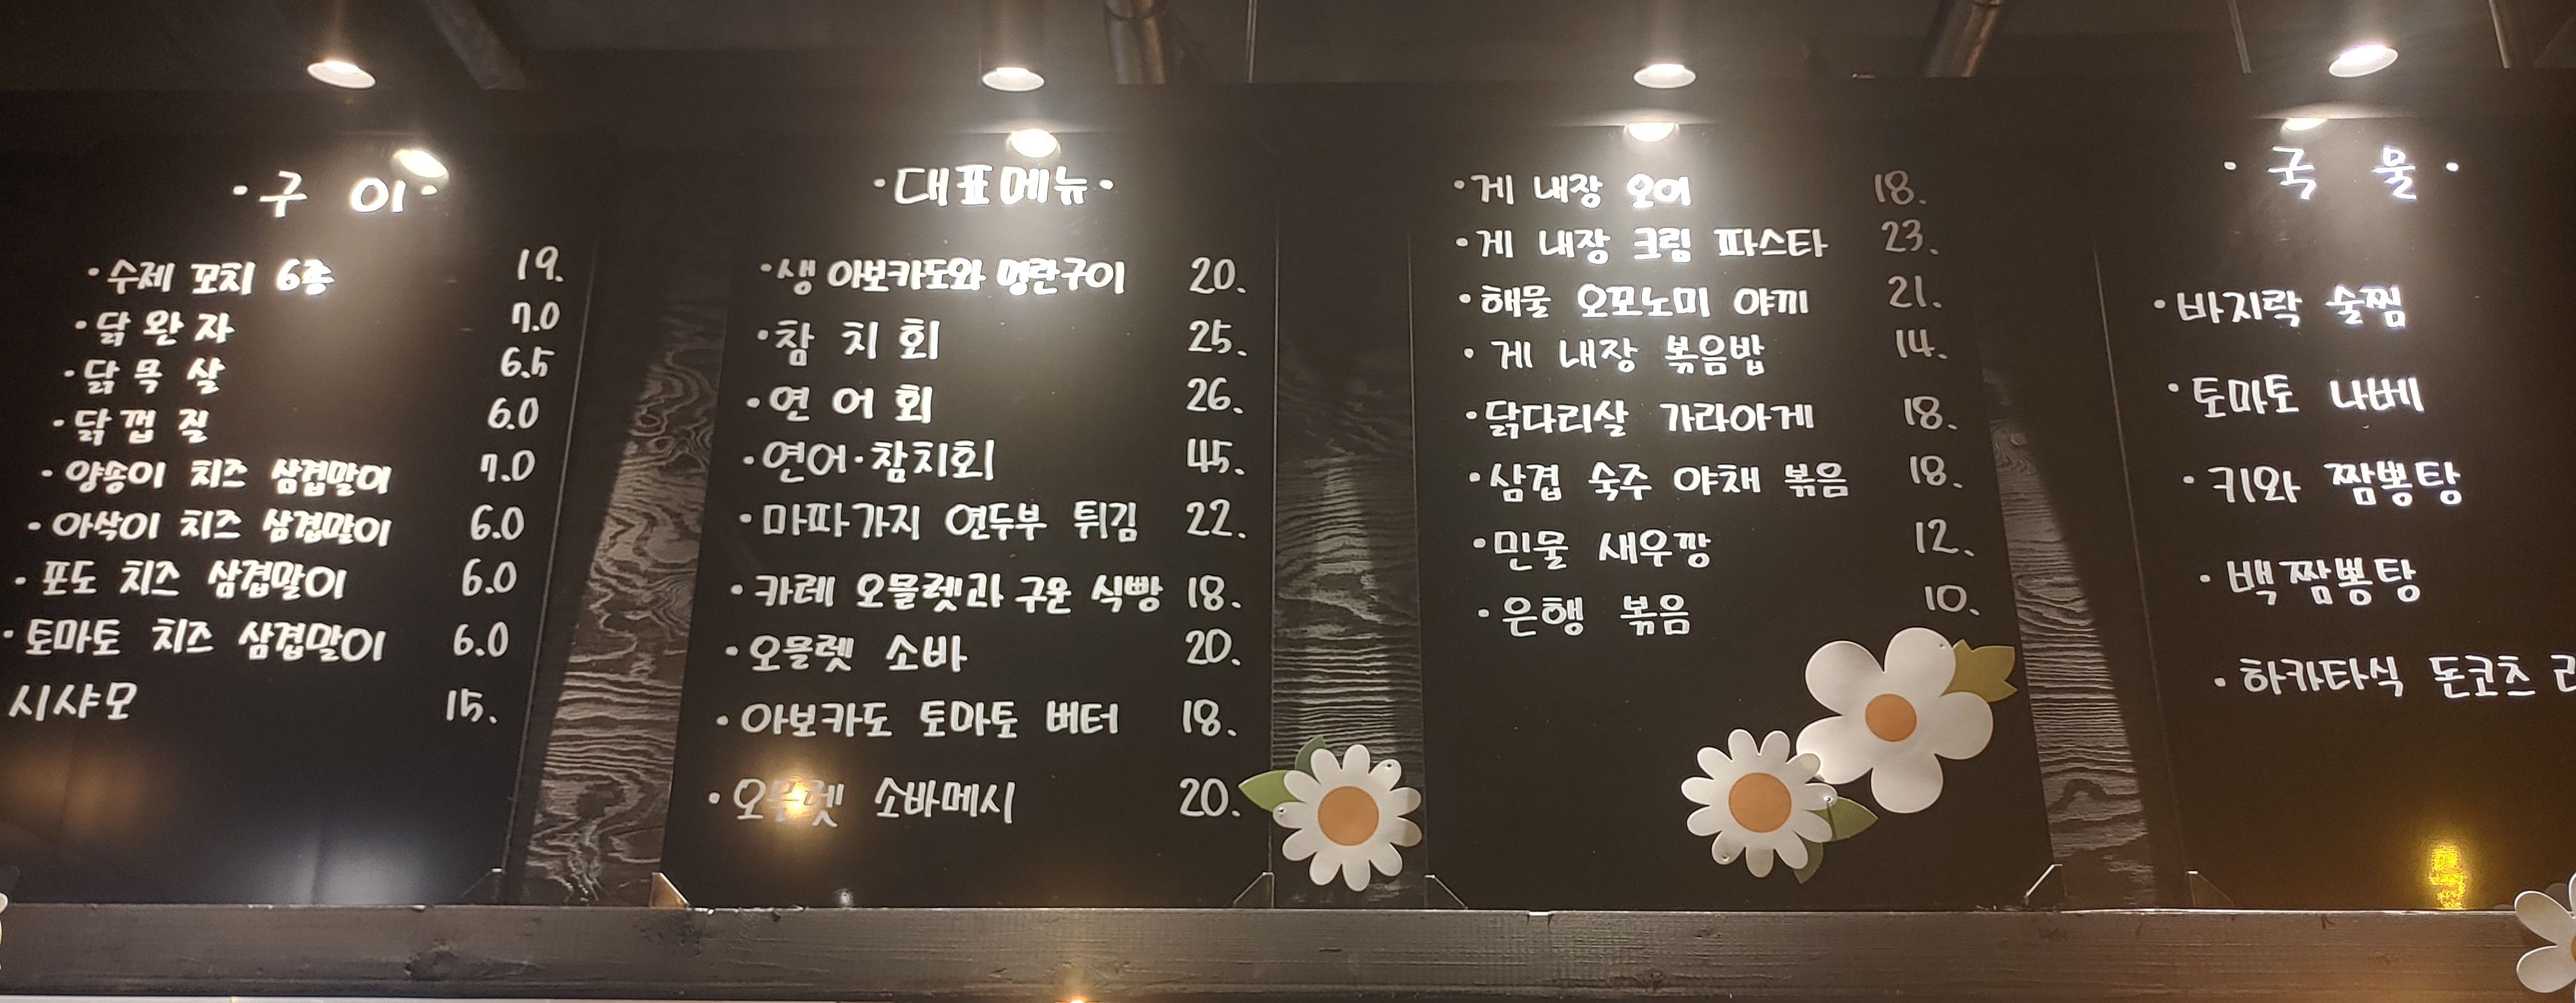 ·구 이·
·수제 꼬치 6종 19.
·닭 완 자 7.0
·닭 목 살 6.5
·닭 껍 질 6.0
·양송이 치즈 삼겹말이 7.0
·아삭이 치즈 삼겹말이 6.0
·포도 치즈 삼겹말이 6.0
·토마토 치즈 삼겹말이 6.0
시샤모 15.
·대표메뉴·
·생 아보카도와 명란구이 20.
·참 치 회 25.
·연 어 회 26.
·연어·참치회 45.
·마파가지 연두부 튀김 22.
·카레 오믈렛과 구운 식빵 18.
·오믈렛 소바 20.
·아보카도 토마토 버터 18.
·오믈렛 소바메시 20.
·게 내장 오이 18.
·게 내장 크림 파스타 23.
·해물 오꼬노미 야끼 21.
·게 내장 볶음밥 14.
·닭다리살 가라아게 18.
·삼겹 숙주 야채 볶음 18.
·민물 새우깡 12.
·은행 볶음 10.
·국 물·
·바지락 술찜
·토마토 나베
·키와 짬뽕탕
·백짬뽕탕
·하카타식 돈코츠